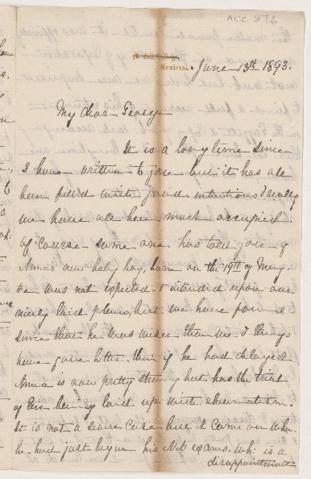 ACC 876
June 13th 1893.
My dear George
It is a long time since
I have written to you but it has all
been filled with good intentions & really
we have all been much occupied.
Of course some one has told you of
Annie's new baby boy, born on the 19th of May.
He was not expected & intruded upon our
nicely laid plans, but we have found
since that he was wiser than we & things
have gone better than if he had delayed
Anna is now pretty strong but has the trial
of Eben being laid up with rheumatism.
It is not a severe case but it came on when
he had just begun his exams. wh: is a
disappointment